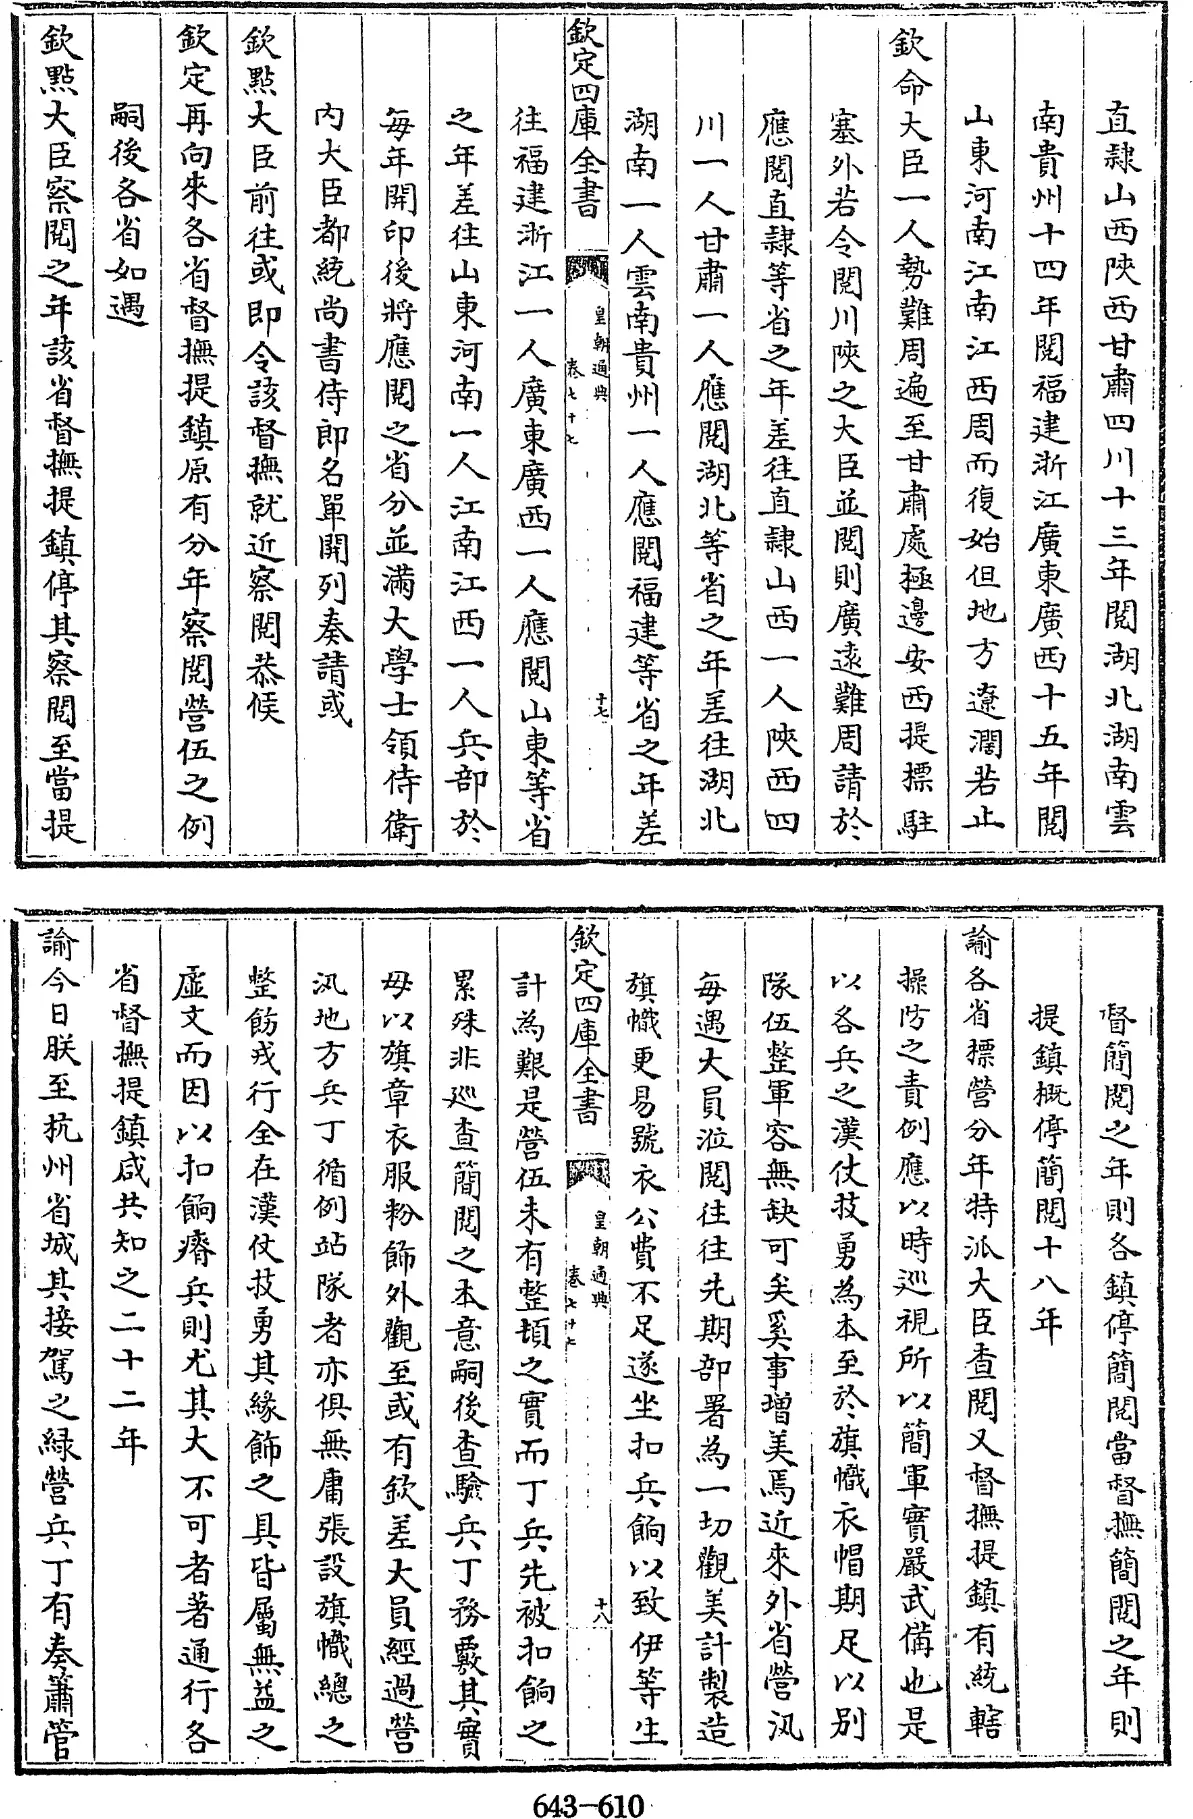 直隸山西陜西甘肅四川十三年閲湖北湖南雲
南貴州十四年閲福建浙江廣東廣西十五年閲
山東河南江南江西周而復始但地方遼濶若止
欽命大臣一人勢難周遍至甘肅處極邊安西提標駐
塞外若令閲川陜之大臣並閲則廣逺難周請於
應閲直隸等省之年差往直隸山西一人陜西四
川一人甘肅一人應閲湖北等省之年差往湖北
湖南一人雲南貴州一人應閲福建等省之年差
欽定四庫全書
皇朝通典
卷七十七
十七
往福建浙江一人廣東廣西一人應閲山東等省
之年差往山東河南一人江南江西一人兵部於
每年開印後將應閲之省分並滿大學士領侍衛
内大臣都統尚書侍郎名單開列奏請或
欽點大臣前往或即令該督撫就近察閲恭候
欽定再向來各省督撫提鎮原有分年察閲營伍之例
嗣後各省如遇
欽點大臣察閲之年該省督撫提鎮停其察閲至當提
督簡閲之年則各鎮停簡閲當督撫簡閲之年則
提鎮概停簡閲十八年
諭各省標營分年特派大臣查閲又督撫提鎮有統轄
操防之責例應以時廵視所以簡軍實嚴武備也是
以各兵之漢仗技勇為本至於旗幟衣帽期足以别
隊伍整軍容無缺可矣奚事增美焉近來外省營汛
每遇大員涖閲往往先期部署為一切觀美計製造
旗幟更易號衣公費不足遂坐扣兵餉以致伊等生
欽定四庫全書
皇朝通典
卷七十七
十八
計為艱是營伍未有整頓之實而丁兵先被扣餉之
累殊非廵查簡閲之本意嗣後查驗兵丁務覈其實
毋以旗章衣服粉飾外觀至或有欽差大員經過營
汛地方兵丁循例站隊者亦俱無庸張設旗幟總之
整飭戎行全在漢仗技勇其緣飾之具皆屬無益之
虛文而因以扣餉瘠兵則尤其大不可者著通行各
省督撫提鎮咸共知之二十二年
諭今日朕至杭州省城其接駕之緑營兵丁有奏簫管
643-610